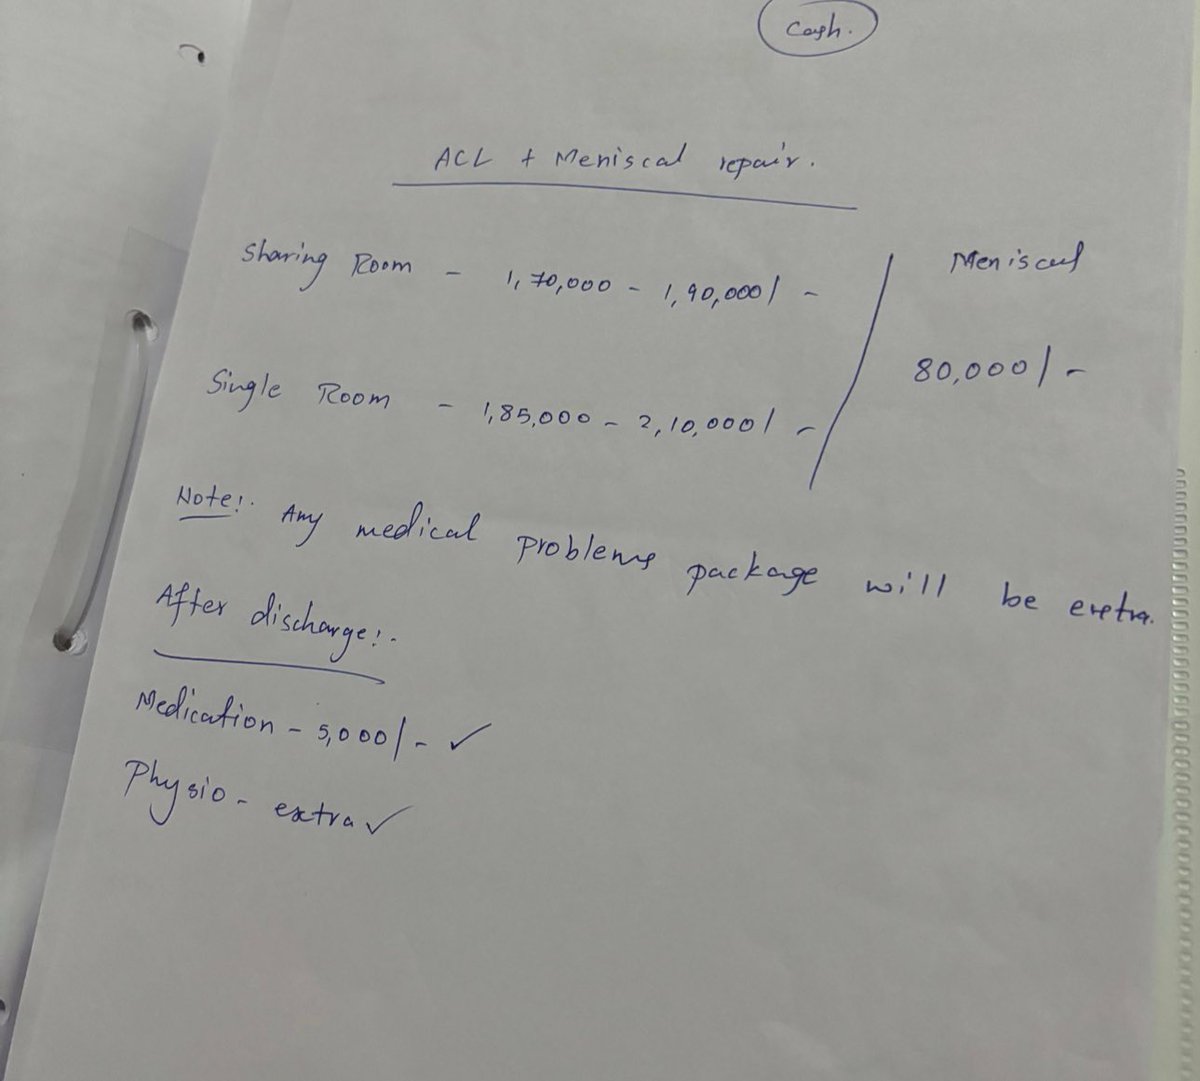 Cash.
ACL + Meniscal repair.
Sharing Room - 1,70,000 - 1,90,000/-
Single Room - 1,85,000 - 2,10,000/-
Meniscal
80,000/-
Note:- Any medical problems package will be extra.
After discharge:-
Medication - 5,000/- ✓
Physio - extra ✓